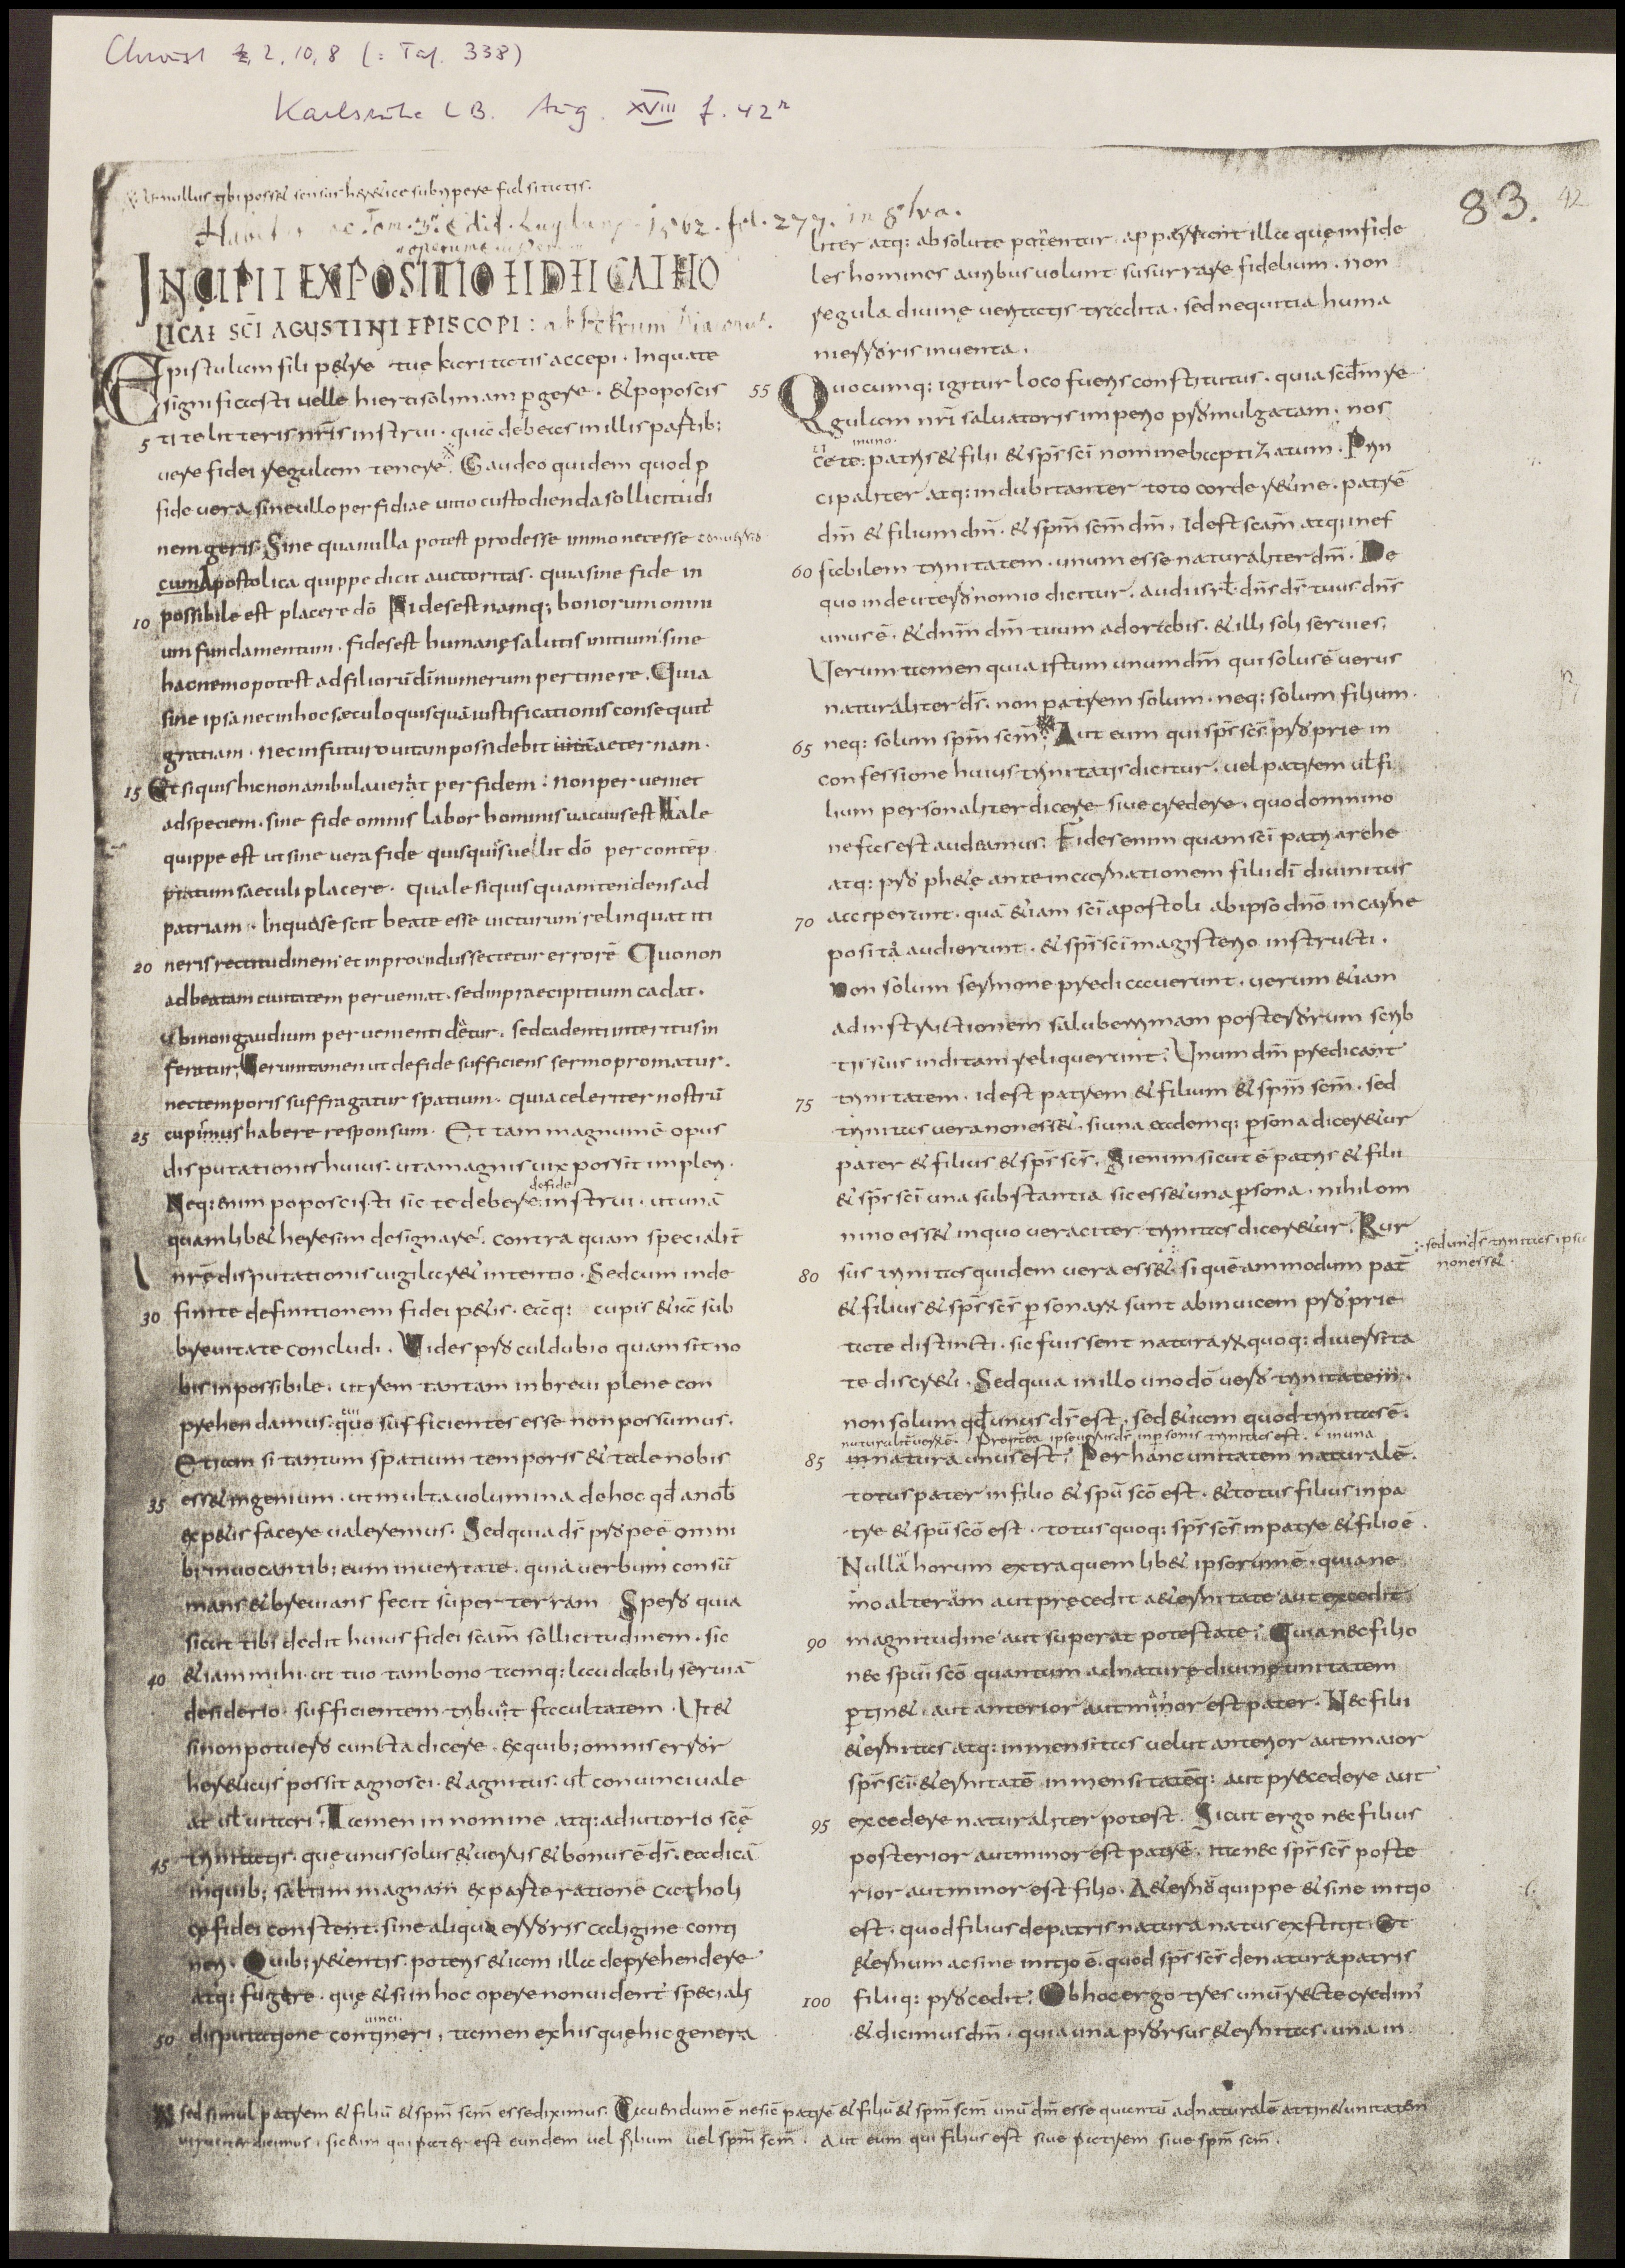 Christ 2, 10, 8 (= Taf. 338)
Karlsruhe LB. Aug. XVIII f. 42r
83. 42
nullus tibi posset sensus heretice subripere falsitatis.
INCIPIT EXPOSITIO FIDEI CATHO
LICAE SCI AGUSTINI EPISCOPI: ad Petrum Diaconu.
Epistulam fili petre tue karitatis accepi. In qua te
significasti uelle hierosolimam pgere. & poposcis
5 ti te litteris nris instrui. que debeas in illis partib;
uere fidei regulam tenere. Gaudeo quidem quod p
fide uera sine ullo perfidiae uitio custodienda sollicitudi
nem geris. Sine qua nulla potest prodesse immo nec esse conuersio
cum Apostolica quippe dicit auctoritas. quia sine fide in
10 possibile est placere dō Fides est namq; bonorum omni
um fundamentum. fides est humane salutis initium sine
hac nemo potest ad filiorū dī numerum pertinere. Quia
sine ipsa nec in hoc saeculo quisquā iustificationis consequit
gratiam. nec in futuro uitam possidebit aeternam.
15 Et si quis hic non ambulauerat per fidem: non perueniet
ad speciem. sine fide omnis labor hominis uacuus est Tale
quippe est ut sine uera fide quisquis uellit dō per contēp
ptum saeculi placere. quale si quis quam tendens ad
patriam. In qua se scit beate esse uicturum relinquat iti
20 neris rectitudinem et inprouidus sectetur errorē Quo non
ad beatam ciuitatem perueniat. sed in praecipitium cadat.
Ubi non gaudium peruenienti detur. sed cadenti interitus in
feratur. Uerumtamen ut de fide sufficiens sermo promatur.
nec temporis suffragatur spatium. quia celeriter nostrū
25 cupimus habere responsum. Et tam magnum ē opus
disputationis huius. ut a magnis uix possit impleri.
Neq: enim poposcisti sic te debere de fide instrui. ut unā
quamlib& heresim designare. contra quam specialit
nrē disputationis uigilar& intentio. Sed cum inde
30 finite definitionem fidei p&is. eāq: cupis &iā sub
breuitate concludi. Uides proculdubio quam sit no
bis inpossibile. ut rem tantam in breui plene con
prehendamus. cui sufficientes esse non possumus.
Etiam si tantum spatium temporis & tale nobis
35 ess& ingenium. ut multa uolumina de hoc qd a nob
exp&is facere ualeremus. Sed quia ds prope ē omni
b; inuocantib; eum in ueritate. quia uerbum consū
mans & breuians fecit super terram Spero quia
sicut tibi dedit huius fidei scam sollicitudinem. sic
40 &iam mihi. ut tuo tam bono tamq: laudabili seruiā
desiderio. sufficientem tribuat facultatem. Ut &
si non potuero cuncta dicere. ex quib; omnis error
her&icus possit agnosci. & agnitus: ul conuinci uale
at ul uitari. Tamen in nomine atq: adiutorio scę
45 trinitatis. que unus solus & uerus & bonus ē ds. ea dicā
in quib; saltim magnam ex parte ratione catholi
cę fidei constent. sine aliqua erroris caligine conti
neri. Quib; r&entis. potens &iam illa deprehendere
atq: fugare. que &si in hoc opere non uident speciali
50 disputatione contineri, tamen ex his quę hic genera
uinci
liter atq: absolute ponentur. apparebunt illa que infide
les homines auribus uolunt susurrare fidelium. non
regula diuine ueritatis tradita. sed nequitia huma
ni erroris inuenta.
55 Quocumq: igitur loco fueris constitutus. quia scdm re
gulam nri saluatoris imperio promulgatam. nos
ti te patris & filii & sps sci nomine baptizatum. Prin
cipaliter atq: indubitanter toto corde r&ine. patrē
dm & filium dm. & spm scm dm, Id est scam atq: inef
60 fabilem trinitatem. unum esse naturaliter dm. De
quo in deuteronomio dicitur. audi isrl. dns ds tuus dns
unus ē. & dnm dm tuum adorabis. & illi soli seruies.
Uerum tamen quia istum unum dm qui solus ē uerus
naturaliter ds. non patrem solum. neq: solum filium.
65 neq: solum spm scm. Aut eum qui sps scs proprie in
confessione huius trinitatis dicitur. uel patrem ul fi
lium personaliter dicere siue credere. quod omnino
nefas est audeamus. Fides enim quam sci patriarche
atq: proph&e ante incarnationem filii dī diuinitus
70 acceperunt. quā &iam sci apostoli ab ipso dnō in carne
posita audierunt. & sps sci magisterio instructi.
Non solum sermone predicauerunt. uerum &iam
ad instructionem saluberrimam posterorum scrib
tis suis inditam reliquerunt. Unum dm predicant
75 trinitatem. id est patrem & filium & spm scm. sed
trinitas uera non ess&. si una eademq: psona dicer&ur
pater & filius & sps scs. Si enim sicut ē patris & filii
& sps sci una substantia sic ess& una psona. nihil om
nino ess& in quo ueraciter trinitas dicer&ur. Rur
80 sus trinitas quidem uera ess&. si quēammodum pat
& filius & sps scs psonarx sunt ab inuicem proprie
tate distincti. sic fuissent naturarx quoq: diuersita
te discr&i. Sed quia in illo uno dō uero trinitatem.
non solum qd unus ds est. sed &iam quod trinitas ē.
naturalit uerū ē. Propterea ipse uerus ds in psonis trinitas est. in una
85 natura unus est. Per hanc unitatem naturalē.
totus pater in filio & spu scō est. & totus filius in pa
tre & spu scō est. totus quoq: sps scs in patre & filio ē.
Nullus horum extra quemlib& ipsorum ē. quia ne
mo alterum aut precedit a&ernitate aut excedit
90 magnitudine aut superat potestate. Quia nec filio
nec spui scō quantum ad naturę diuinę unitatem
ptin&. aut anterior aut minor est pater. Nec filii
&ernitas atq: inmensitas uelut anterior aut maior
sps sci. &ernitatē inmensitatēq: aut precedere aut
95 excedere naturaliter potest. Sicut ergo nec filius
posterior aut minor est patre. ita nec sps scs poste
rior aut minor est filio. A&ernō quippe & sine initio
est. quod filius de patris natura natus exstitit. Et
&ernum ac sine initio ē. quod sps scs de natura patris
100 filiiq: procedit. Ob hoc ergo tres unū recte credim
& dicimus dm. quia una prorsus &ernitas. una in
sed unds trinitas ipse
non ess&.
sed simul patrem & filiū & spm scm esse diximus. Cauendum ē ne sic patrē & filiū & spm scm unū dm esse quantū ad naturalē attin& unitatem
dicimus. sic eum qui pater est eundem uel filium uel spm scm. Aut eum qui filius est siue patrem siue spm scm.